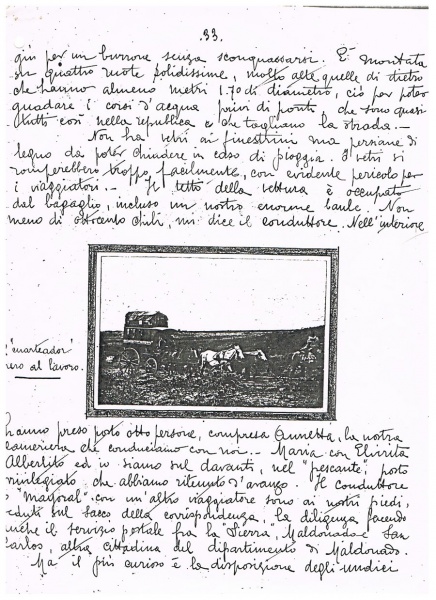 33.
giù per un burrone senza sconquassarsi. È montata
su quattro ruote solidissime, molto alte quelle di dietro
che hanno almeno metri 1.70 di diametro, ciò per poter
guadare i corsi d'acqua privi di ponti che sono quasi
tutti così nella repubblica e che tagliano la strada.-
Non ha vetri ai finestrini ma persiane di
legno da poter chiudere in caso di pioggia. I vetri si
romperebbero troppo facilmente, con evidente pericolo per
i viaggiatori.- Il tetto della vettura è occupato
dal bagaglio, incluso un nostro enorme baule. Non
meno di ottocento chili, mi dice il conduttore. Nell'interiore
"cuarteador"
nero al lavoro.
hanno preso posto otto persone, compresa Annetta, la nostra
cameriera che conduciamo con noi.- Maria con Elvirita
Albertito ed io siamo sul davanti, nel "pescante", posto
privilegiato che abbiamo ritenuto d'avanzo. Il conduttore
o "mayoral" con un'altro viaggiatore sono ai nostri piedi,
seduti sul sacco della corrispondenza, la diligenza facendo
anche il servizio postale fra la Sierra, Maldonado e San
Carlos, altra cittadina del dipartimento di Maldonado.
Ma il più curioso è la disposizione degli undici